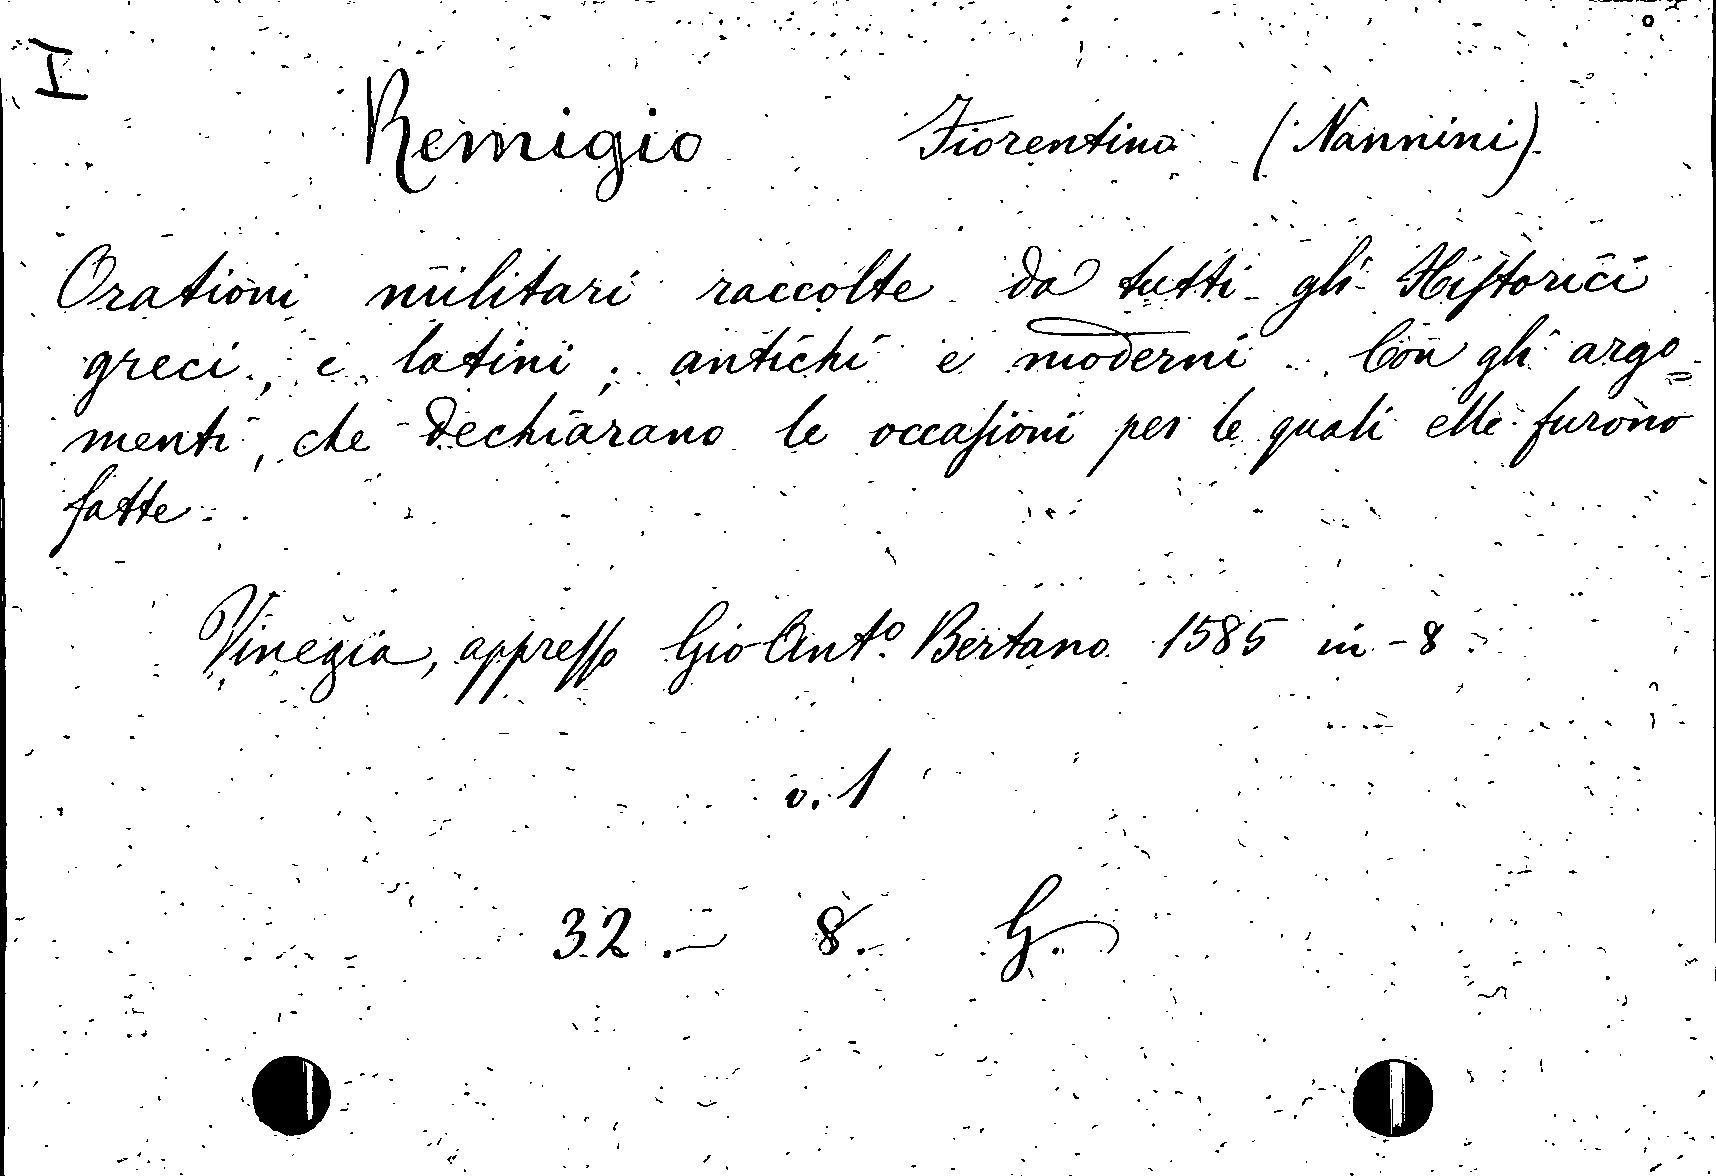 I
Remigio Fiorentino (Nannini)
Orationi militari raccolte da tutti gli Hiſtorici
greci, e latini, antichi e moderni. Con gli argo=
menti, che dechiarano le occaſioni per le quali elle furono
fatte.
Vinegia, appreſſo Gio Ant.º Bertano 1585 in-8
v. 1
32.— 8. G.